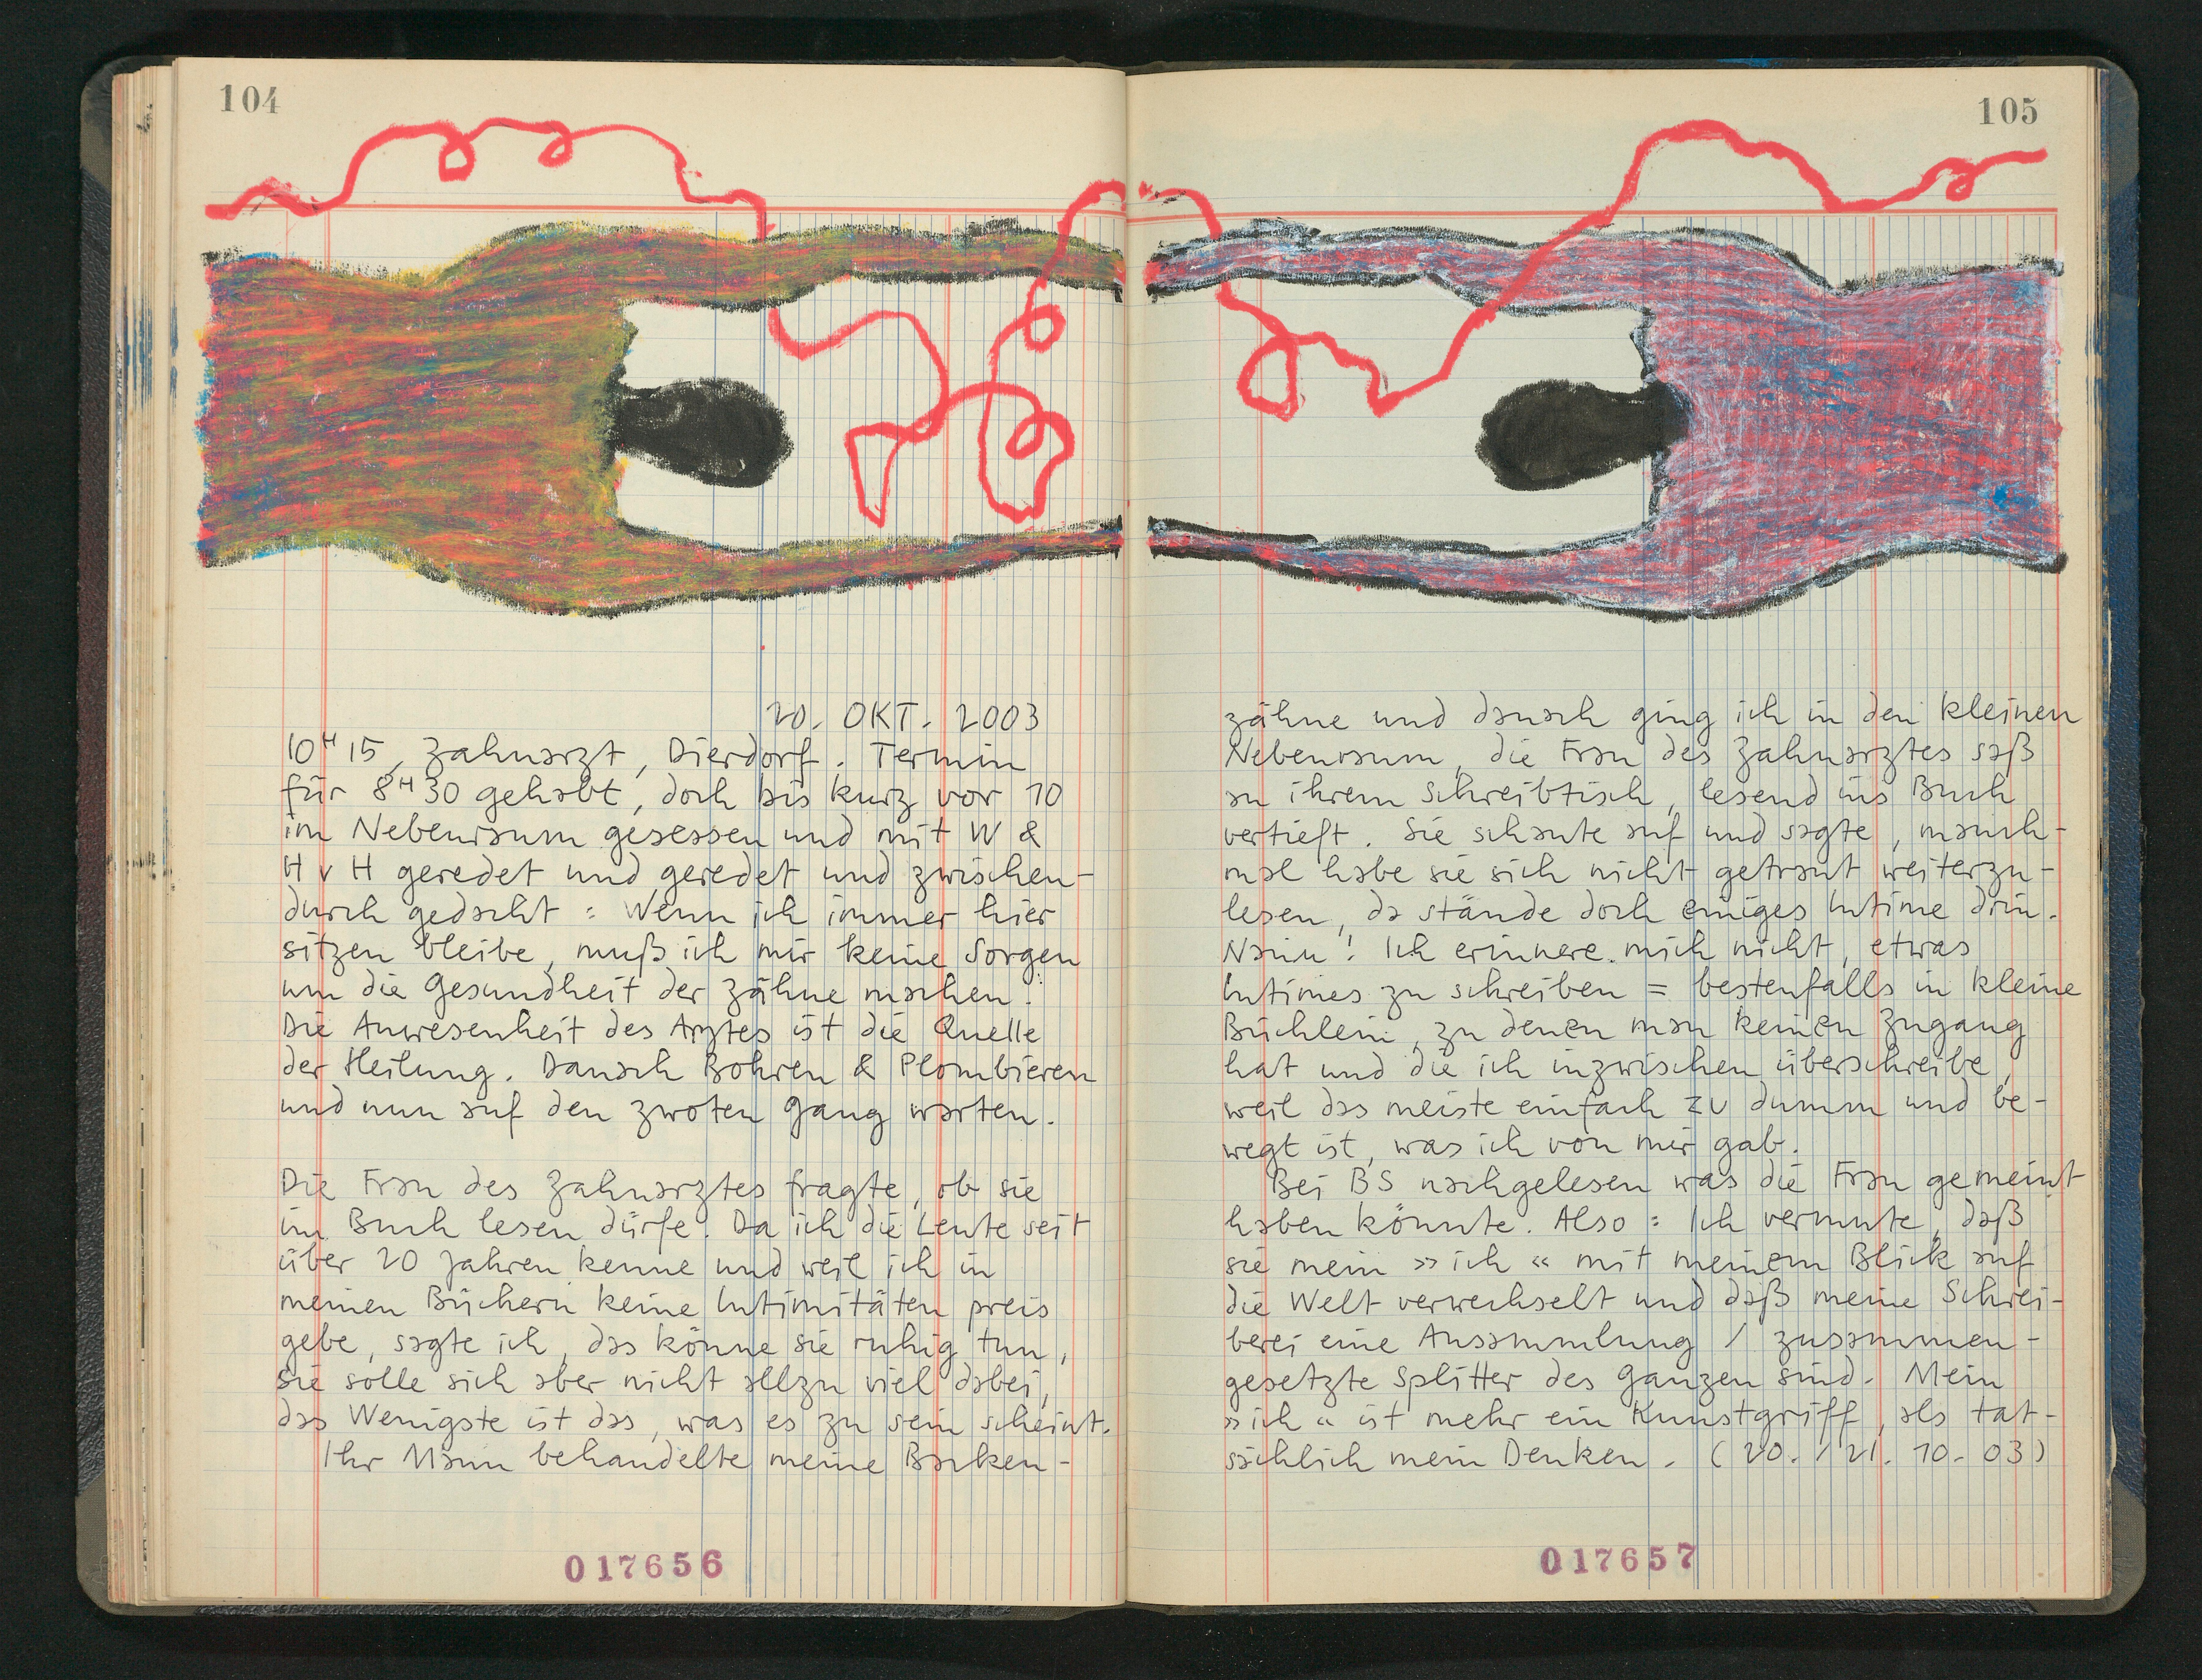 104
20. OKT. 2003
10ᴴ15, Zahnarzt, Dierdorf. Termin
für 8ᴴ30 gehabt, doch bis kurz vor 10
im Nebenraum gesessen und mit W &
H v H geredet und geredet und zwischen-
durch gedacht: Wenn ich immer hier
sitzen bleibe, muß ich mir keine Sorgen
um die Gesundheit der Zähne machen!
Die Anwesenheit des Arztes ist die Quelle
der Heilung. Danach Bohren & Plombieren
und nun auf den zwoten Gang warten.
Die Frau des Zahnarztes fragte, ob sie
im Buch lesen dürfe. Da ich die Leute seit
über 20 Jahren kenne und weil ich in
meinen Büchern keine Intimitäten preis
gebe, sagte ich, das könne sie ruhig tun,
sie solle sich aber nicht allzu viel dabei,
das Wenigste ist das, was es zu sein scheint.
Ihr Mann behandelte meine Backen-
017656
105
zähne und danach ging ich in den kleinen
Nebenraum, die Frau des Zahnarztes saß
an ihrem Schreibtisch, lesend ins Buch
vertieft. Sie schaute auf und sagte, manch-
mal habe sie sich nicht getraut weiterzu-
lesen, da stände doch einiges Intime drin.
Nanu! Ich erinnere mich nicht, etwas
Intimes zu schreiben = bestenfalls in kleine
Büchlein, zu denen man keinen Zugang
hat und die ich inzwischen überschreibe,
weil das meiste einfach zu dumm und be-
wegt ist, was ich von mir gab.
Bei BS nachgelesen was die Frau gemeint
haben könnte. Also: Ich vermute, daß
sie mein »ich« mit meinem Blick auf
die Welt verwechselt und daß meine Schrei-
berei eine Ansammlung / zusammen-
gesetzte Splitter des Ganzen sind. Mein
»ich« ist mehr ein Kunstgriff, als tat-
sächlich mein Denken. (20./21.10.03)
017657